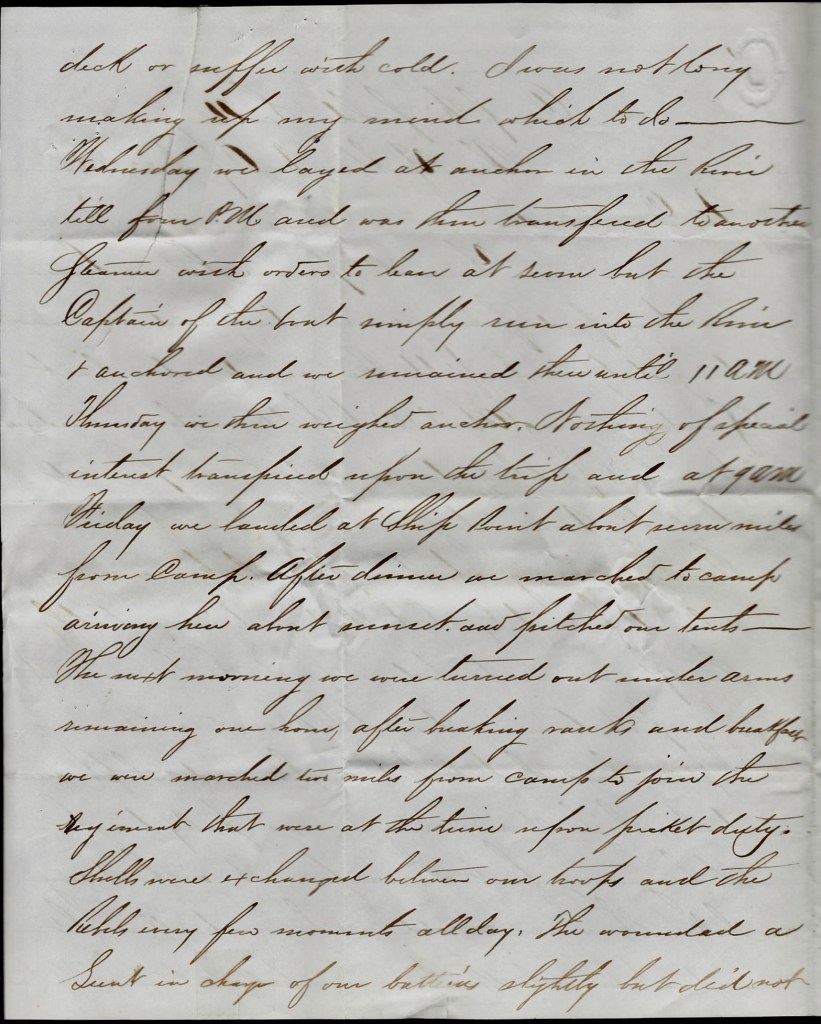 deck or suffer with cold. I was not long
making up my mind which to do —
Wednesday we layed at anchor in the River
till four P.M and was then transfered to another
Steamer with orders to leave at seven but the
Captain of the boat simply run into the River
& anchored and we remained there until 11 AM
Thursday we then weighed anchor. Nothing of special
interest transpired upon the trip and at 9 am
Friday we landed at Ship Point about seven miles
from Camp. After dinner we marched to camp
arriving here about sunset. and pitched our tents —
The next morning we were turned out under arms
remaining one hour, after breaking ranks and breakfast
we were marched two miles from camp to join the
regiment that were at the time upon picket duty.
Shells were exchanged between our troops and the
Rebels every few moments all day. The wounded a
Lieut in charge of our batteries slightly but did not